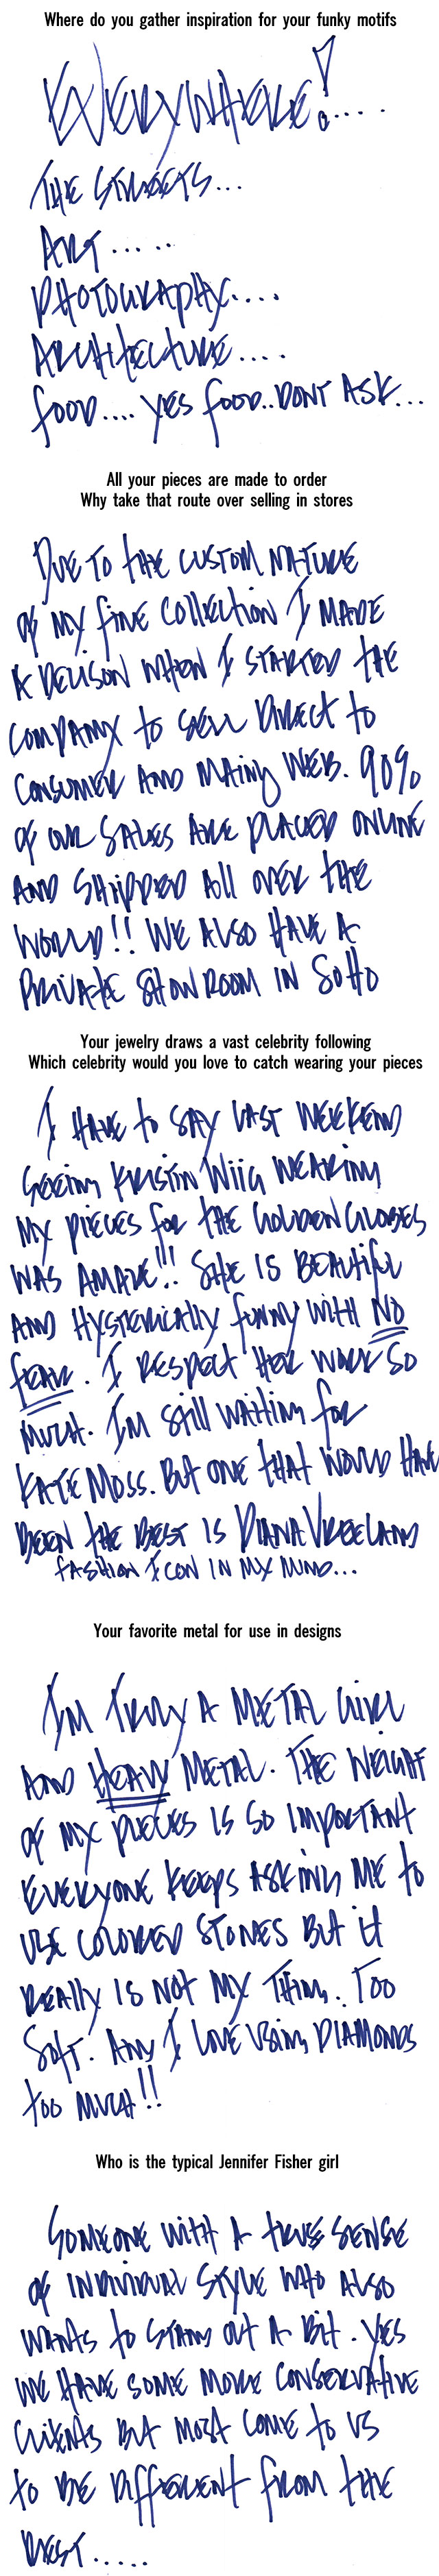 Where do you gather inspiration for your funky motifs
EVERYWHERE!....
THE STREETS...
ART......
PHOTOGRAPHY....
ARCHITECTURE....
FOOD.... YES FOOD..DONT ASK...
All your pieces are made to order
Why take that route over selling in stores
DUE TO THE CUSTOM NATURE
OF MY FINE COLLECTION I MADE
A DECISON WHEN I STARTED THE
COMPANY TO SELL DIRECT TO
CONSUMER AND MAINLY WEB. 90%
OF OUR SALES ARE PLACED ONLINE
AND SHIPPED ALL OVER THE
WORLD!! WE ALSO HAVE A
PRIVATE SHOWROOM IN SOHO
Your jewelry draws a vast celebrity following
Which celebrity would you love to catch wearing your pieces
I HAVE TO SAY LAST WEEKEND
SEEING KRISTIN WIIG WEARING
MY PIECES FOR THE GOLDEN GLOBES
WAS AMAZE!!! SHE IS BEAUTIFUL
AND HYSTERICALLY FUNNY WITH NO
FEAR. I RESPECT HER WORK SO
MUCH. IM STILL WAITING FOR
KATE MOSS. BUT ONE THAT WOULD HAVE
BEEN THE BEST IS DIANA VREELAND
FASHION ICON IN MY MIND...
Your favorite metal for use in designs
I'M TRULY A METAL GIRL
AND HEAVY METAL. THE WEIGHT
OF MY PIECES IS SO IMPORTANT
EVERYONE KEEPS ASKING ME TO
USE COLORED STONES BUT IT
REALLY IS NOT MY THING. TOO
SOFT. AND I LOVE USING DIAMONDS
TOO MUCH!!
Who is the typical Jennifer Fisher girl
SOMEONE WITH A TRUE SENSE
OF INDIVIDUAL STYLE WHO ALSO
WANTS TO STAND OUT A BIT. YES
WE HAVE SOME MORE CONSERVATIVE
CLIENTS BUT MOST COME TO US
TO BE DIFFERENT FROM THE
REST.....